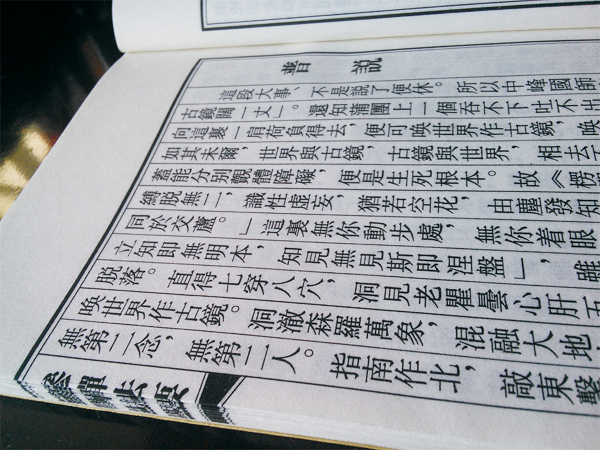 普說
這段大事、不是說了便休。所以中峰國師
古鏡闊一丈」。還知蒲團上一個吞不下吐不出
向這裏一肩荷負得去，便可喚世界作古鏡，喚
如其未爾，世界與古鏡，古鏡與世界，相去
蓋能分別覿體障礙，便是生死根本。故《楞
縛脫無二，識性虛妄，猶若空花，由塵發知
同於交蘆。」這裏無你動步處，無你着眼
立知即無明本，知見無見斯即涅盤」，雖
脫落。直得七穿八穴，洞見老瞿曇心肝五
喚世界作古鏡。洞澈森羅萬象，混融大地
無第二念，無第二人。指南作北，敲東擊